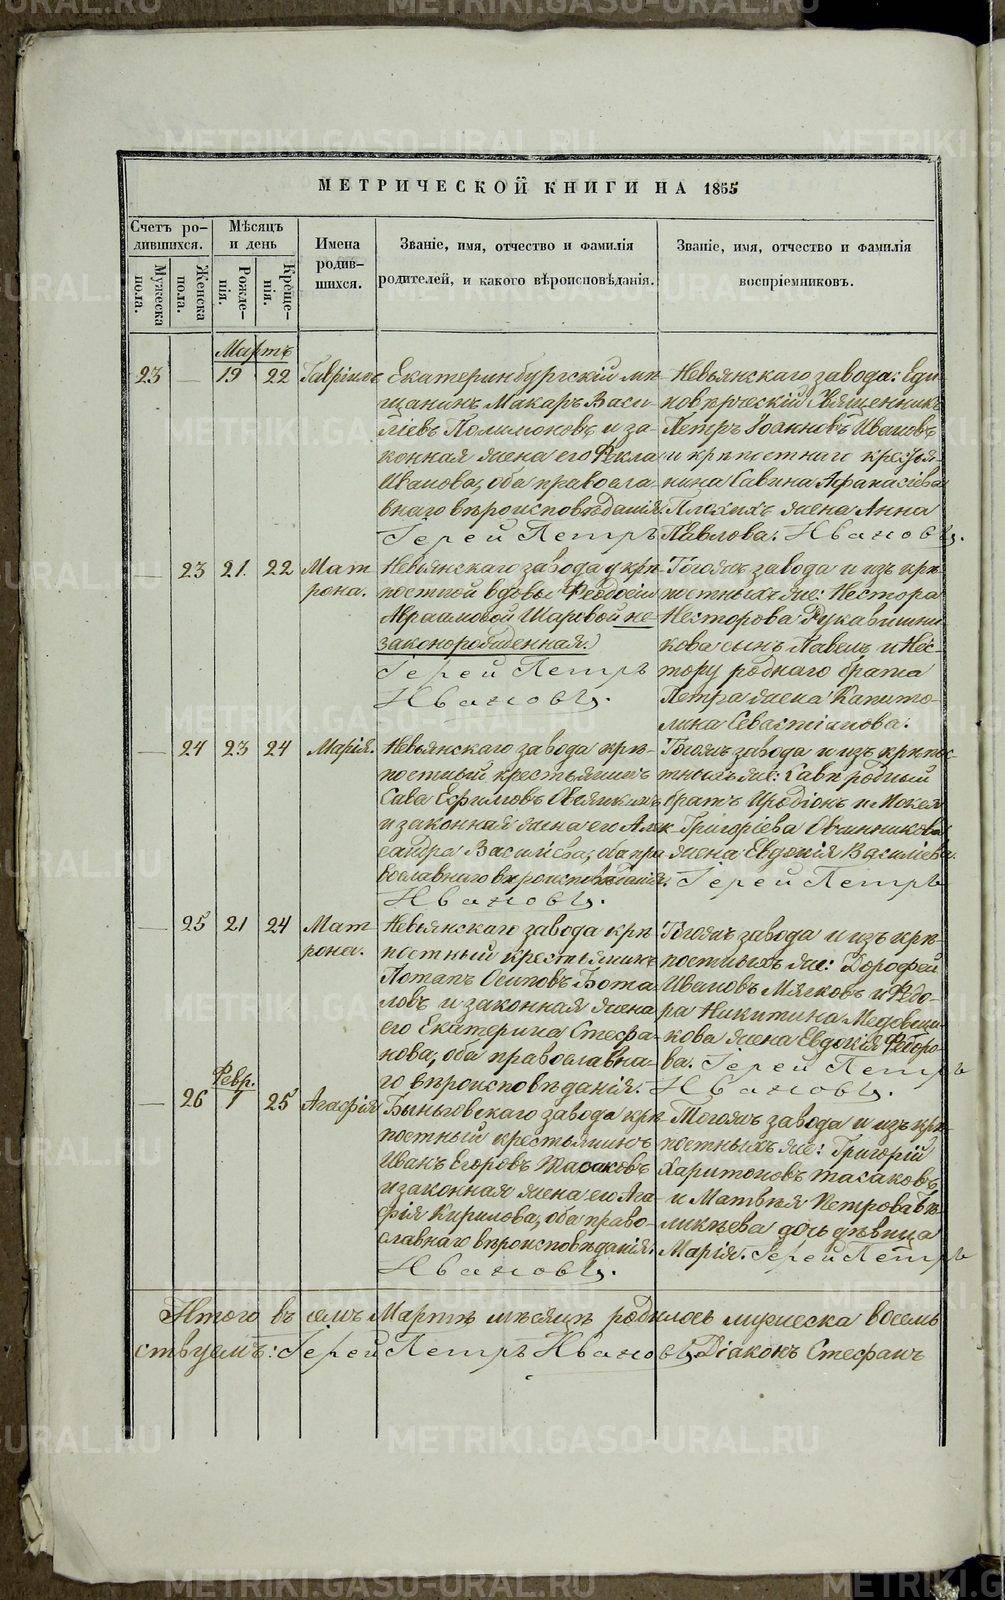 МЕТРИЧЕСКОЙ КНИГИ НА 1855
Счетъ ро-
дившихся.
Мѣсяцъ
и день
Имена
родив-
шихся.
Званіе, имя, отчество и фамилія
родителей, и какого вѣроисповѣданія.
Званіе, имя, отчество и фамилія
воспріемниковъ.
Мужеска
пола.
Женска
пола.
Рожде-
нія.
Креще-
нія.
Мартъ
23 — 19 22 Гавріилъ
Екатеринбургскій мѣ-
щанинъ Макаръ Васи-
ліевъ Филимоновъ и за-
конная жена его Ѳекла
Иванова, оба православ-
наго вѣроисповѣданія
Іерей Петръ
Невьянскаго завода: Еди-
новѣрческій Священникъ
Петръ Іоанновъ Ивановъ
и крѣпостнаго крестья-
нина Савина Аѳанасіева
Плохихъ жена Анна
Павлова. Ивановъ.
— 23 21. 22 Мат
рона.
Невьянскаго завода у крѣ-
постной вдовы Ѳеодосіи
Авраамовой Шаровой не-
законорожденная.
Іерей Петръ
Ивановъ.
Тогожъ завода и изъ крѣ-
постныхъ же: Нестора
Несторова Рукавишни-
кова сынъ Павелъ и Нес-
тору роднаго брата
Петра жена Капито-
лина Севастіанова.
— 24 23 24 Марія.
Невьянскаго завода крѣ-
постный крестьянинъ
Сава Ефимовъ
и законная жена его Алек-
сандра Василіева, оба пра
вославнаго вѣроисповѣданія.
Ивановъ.
Тогожъ завода и изъ крѣпос-
тныхъ же: Савѣ родный
братъ Иродіонъ и Мокея
Григоріева Овчинникова
жена Евдокія Василіева.
Іерей Петръ
— 25 21 24 Мат
рона.
Невьянскаго завода крѣ
постный крестьянинъ
Потапъ Осиповъ Бота
ловъ и законная жена
его Екатерина Стефа-
нова, оба православна-
го вѣроисповѣданія.
Тогожъ завода и изъ крѣ-
постныхъ же: Дорофей
Ивановъ Мягковъ и Ѳедо-
ра Никитина Медовщи-
кова жена Евдокія Ѳедоро-
ва. Іерей Петръ
Ивановъ.
Февр.
— 26 1 25 Агафія
Быньговскаго завода крѣ
постный крестьянинъ
Иванъ Егоровъ Масаковъ
и законная жена его Ага-
фія Кирилова, оба право-
славнаго вѣроисповѣданія.
Ивановъ.
Тогожъ завода и изъ крѣ-
постныхъ же: Григорій
Харитоновъ Масаковъ
и Матвѣя Петрова Бѣ-
ликѣева дочь дѣвица
Марія. Іерей Петръ
Итого въ семъ Мартѣ мѣсяцѣ родилось мужеска восемь
ствуемъ: Іерей Петръ Ивановъ, Діаконъ Стефанъ
METRIKI.GASO-URAL.RU